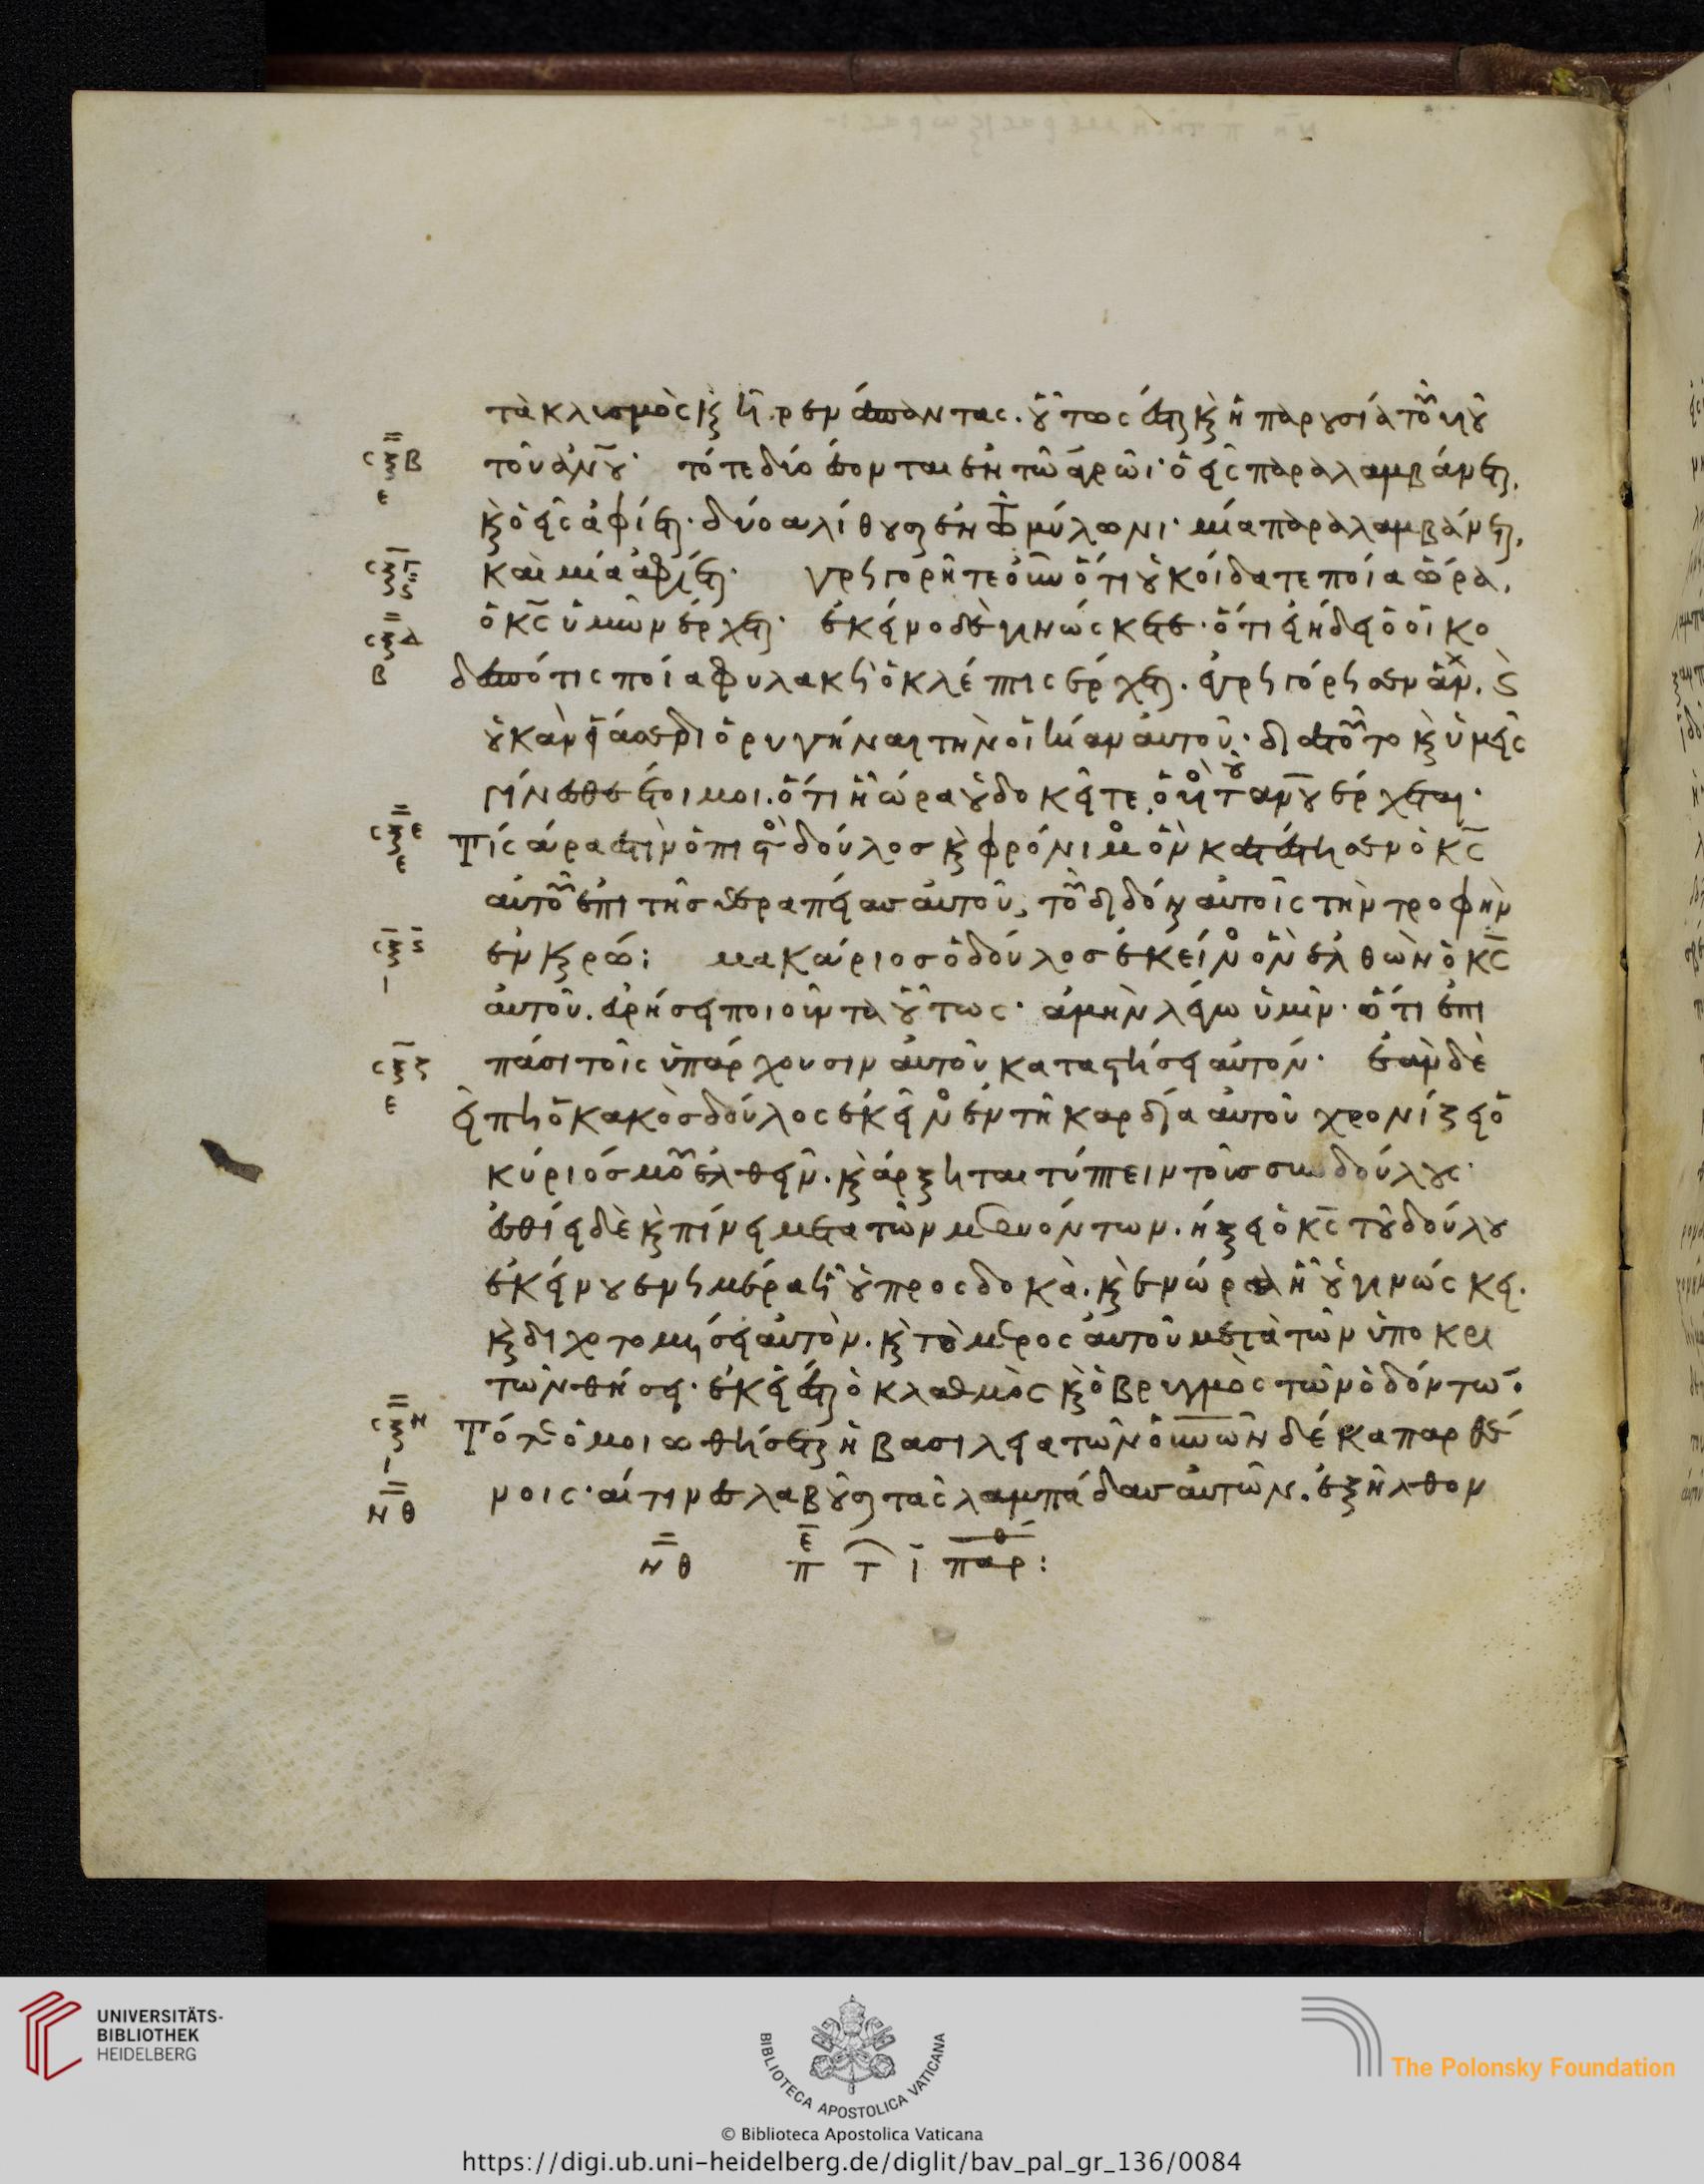 τακλισμὸς καὶ ἦρεν ἅπαντας. οὕτως ἔσται καὶ ἡ παρουσία τοῦ υἱοῦ
σξβ
ε
τοῦ ἀν̅ου· τότε δύο ἔσονται ἐν τῶ ἀγρῶι· ὁ εἷς παραλαμβάνεται,
καὶ ὁ εἷς ἀφίεται· δύο ἀλίθουσαι ἐν τῶ μύλωνι· μία παραλαμβάνεται,
σξγ
ϛ
καὶ μία ἀφίεται· γρηγορῆτε οὖν ὅτι οὐκ οἴδατε ποία ὥρα,
σξδ
β
ὁ κ̅ς̅ ὑμῶν ἔρχεται· ἐκεῖνο δὲ γινώσκετε· ὅτι εἰ ἤδει ὁ οἰκο
δεσπότις ποία φυλακῆ ὁ κλέπτις ἔρχεται. ἐγρηγόρησεν ἄν. καὶ
οὐκ ἂν εἴασεν διορυγῆναι τὴν οἰκίαν αὐτοῦ· διατοῦτο καὶ ὑμεῖς
γίνεσθε ἕτοιμοι. ὅτι ἧ ὥρα οὐ δοκεῖτε, ὁ υἱὸς τοῦ ἀν̅ου ἔρχεται·
σξε
ε
Τίς ἄρα ἐστὶν ὁ πιστὸς δοῦλος καὶ φρόνιμος ὃν κατέστησεν ὁ κ̅ς̅
αὐτοῦ ἐπὶ τῆς θεραπείας αὐτοῦ, τοῦ διδόναι αὐτοῖς τὴν τροφὴν
σξϛ
ι
ἐν καιρῶ: μακάριος ὁ δοῦλος ἐκεῖνος ὃν ἐλθὼν ὁ κ̅ς̅
αὐτοῦ. εὑρήσει ποιοῦντα οὕτως· ἀμὴν λέγω ὑμῖν· ὅτι ἐπὶ
σξζ
ε
πᾶσι τοῖς ὑπάρχουσιν αὐτοῦ καταστήσει αὐτόν· ἐὰν δὲ
εἴπη ὁ κακὸς δοῦλος ἐκεῖνος ἐν τῆ καρδία αὐτοῦ χρονίζει ὁ
κύριός μου ἐλθεῖν. καὶ ἄρξηται τύπτειν τοὺς συνδούλους·
ἐσθίει δὲ καὶ πίνει μετὰ τῶν μεθυόντων. ἥξει ὁ κ̅ς̅ τοῦ δούλου
ἐκείνου ἐν ἡμέρα ἧ οὐ προσδοκᾶ. καὶ ἐν ὥρα ἧ οὐ γινώσκει.
καὶ διχοτομήσει αὐτόν. καὶ τὸ μέρος αὐτοῦ μετὰ τῶν ὑποκρι
τῶν θήσει· ἐκεῖ ἔσται ὁ κλαθμὸς καὶ ὁ βρυγμὸς τῶν ὀδόντων:
σξη
ι
Τότε ὁμοιωθήσεται ἡ βασιλεία τῶν οὐ̅ν̅ω̅ν̅ δέκα παρθέ
νθ
νοις· αἵτινες λαβοῦσαι τὰς λαμπάδας αὐτῶν. ἐξῆλθον
νθ πε τ ι παρθ:
UNIVERSITÄTS-
BIBLIOTHEK
HEIDELBERG
BIBLIOTECA APOSTOLICA VATICANA
The Polonsky Foundation
© Biblioteca Apostolica Vaticana
https://digi.ub.uni-heidelberg.de/diglit/bav_pal_gr_136/0084